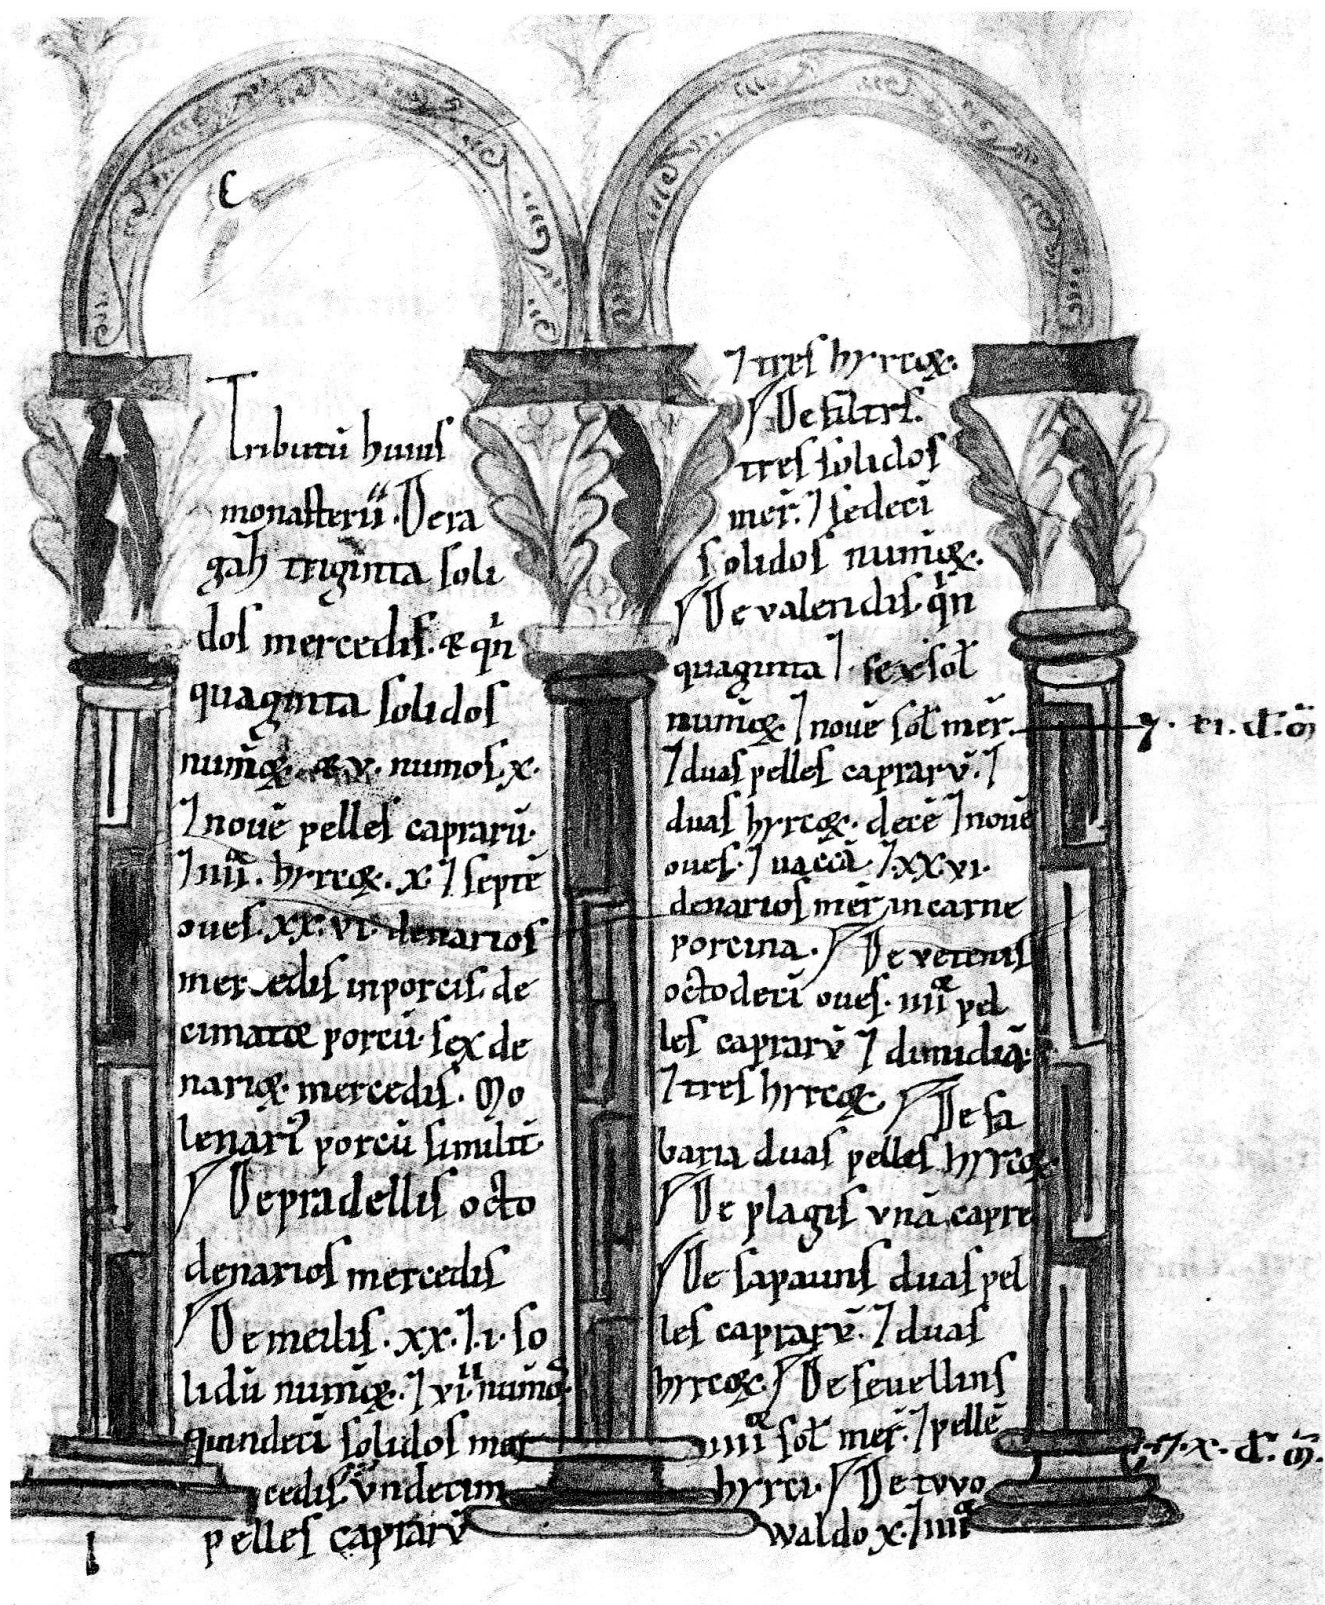 Tributū huius
monasterii. De ra
gaħ triginta soli
dos mercedis. & q̄n
quaginta solidos
num̄oꝝ. & v. numos. x.
⁊ novē pelles caprarū.
⁊ iiii. hyrcoꝝ. x. ⁊ septē
oues. xx. vi. denarios
mercedis in porcis. de
porcū. sex de
narioꝝ. mercedis. Mo
lenariꝰ porcū similit̄.
De pradellis octo
denarios mercedis
De meilis. xx. ⁊. i. so
lidū num̄oꝝ. ⁊ vii. numo
quindeci solidos mer
cedis. vndecim
pelles caprarv̄
⁊ tres hyrcoꝝ.
De filtris.
tres solidos
mer̄. ⁊ sedecī
solidos num̄oꝝ.
De valendis. q̄n
quaginta ⁊. sex sol̄
num̄oꝝ. ⁊ novē sol̄ mer̄. ⁊. vi. d̄. m̄
⁊ duas pelles caprarv̄. ⁊
duas hyrcoꝝ. decē ⁊ novē
oues. ⁊ uaccā. ⁊. xx. vi.
denarios mer̄ in carne
porcina. De vetenis
octodecī oues. iiii pel
les caprarv̄ ⁊ dimidiā.
⁊ tres hyrcoꝝ. De fa
baria duas pelles hyrcoꝝ.
De plagis vnā capre
De sapauns duas pel
les caprarv̄. ⁊ duas
hyrcoꝝ. De seuellins
iiii sol̄ mer̄. ⁊ pellē ⁊. x. d̄. m̄.
hyrci. De tvvo
waldo x. ⁊ iiii